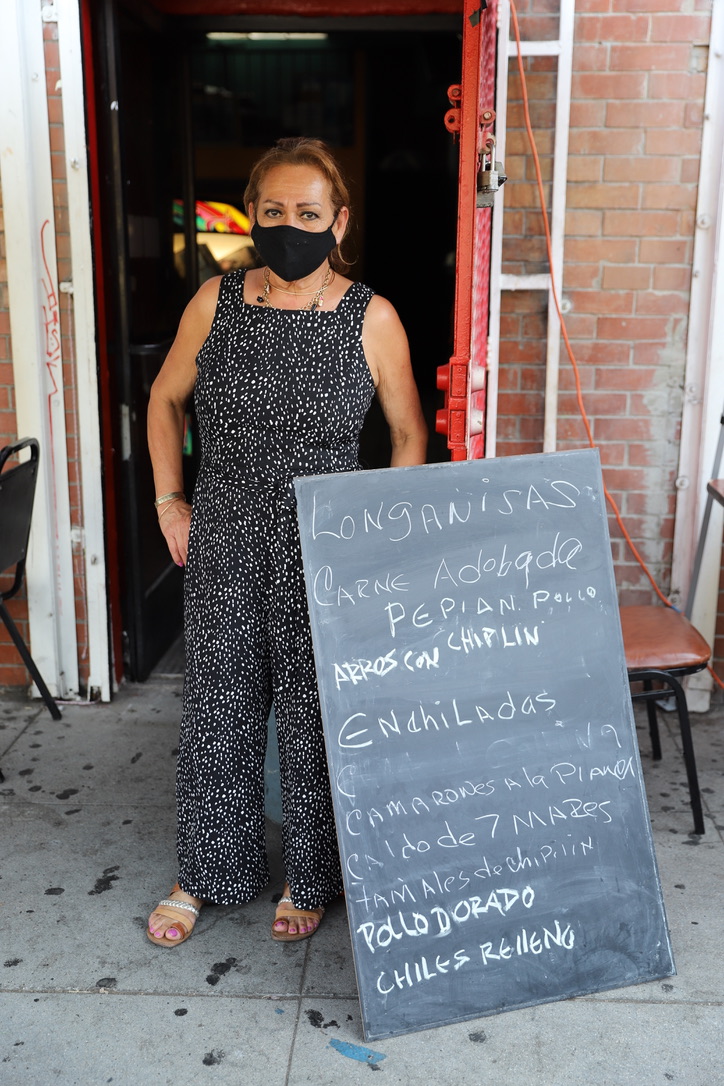 LONGANISAS
CARNE Adobada
PEPIAN. POLLO
ARROS CON CHIPLIN
ENchiLAdas
CAMARONES A la PlANcha
CAldo de 7 MARES
tamales de chipilin
POLLO DORADO
CHILES RELLENO